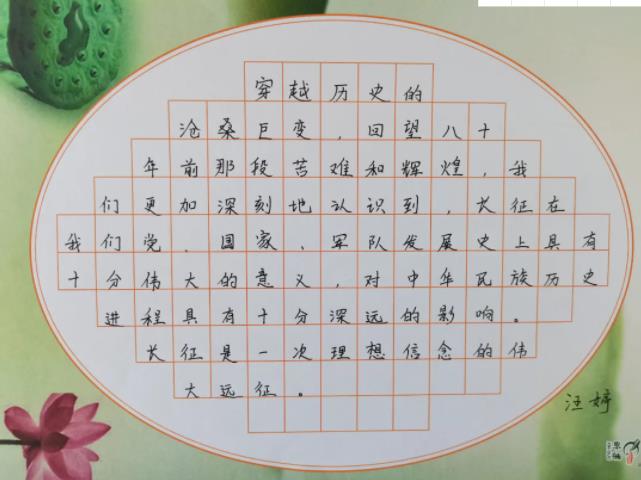 穿越历史的
沧桑巨变，回望八十
年前那段苦难和辉煌，我
们更加深刻地认识到，长征在
我们党、国家、军队发展史上具有
十分伟大的意义，对中华民族历史
进程具有十分深远的影响。
长征是一次理想信念的伟
大远征。
汪婷